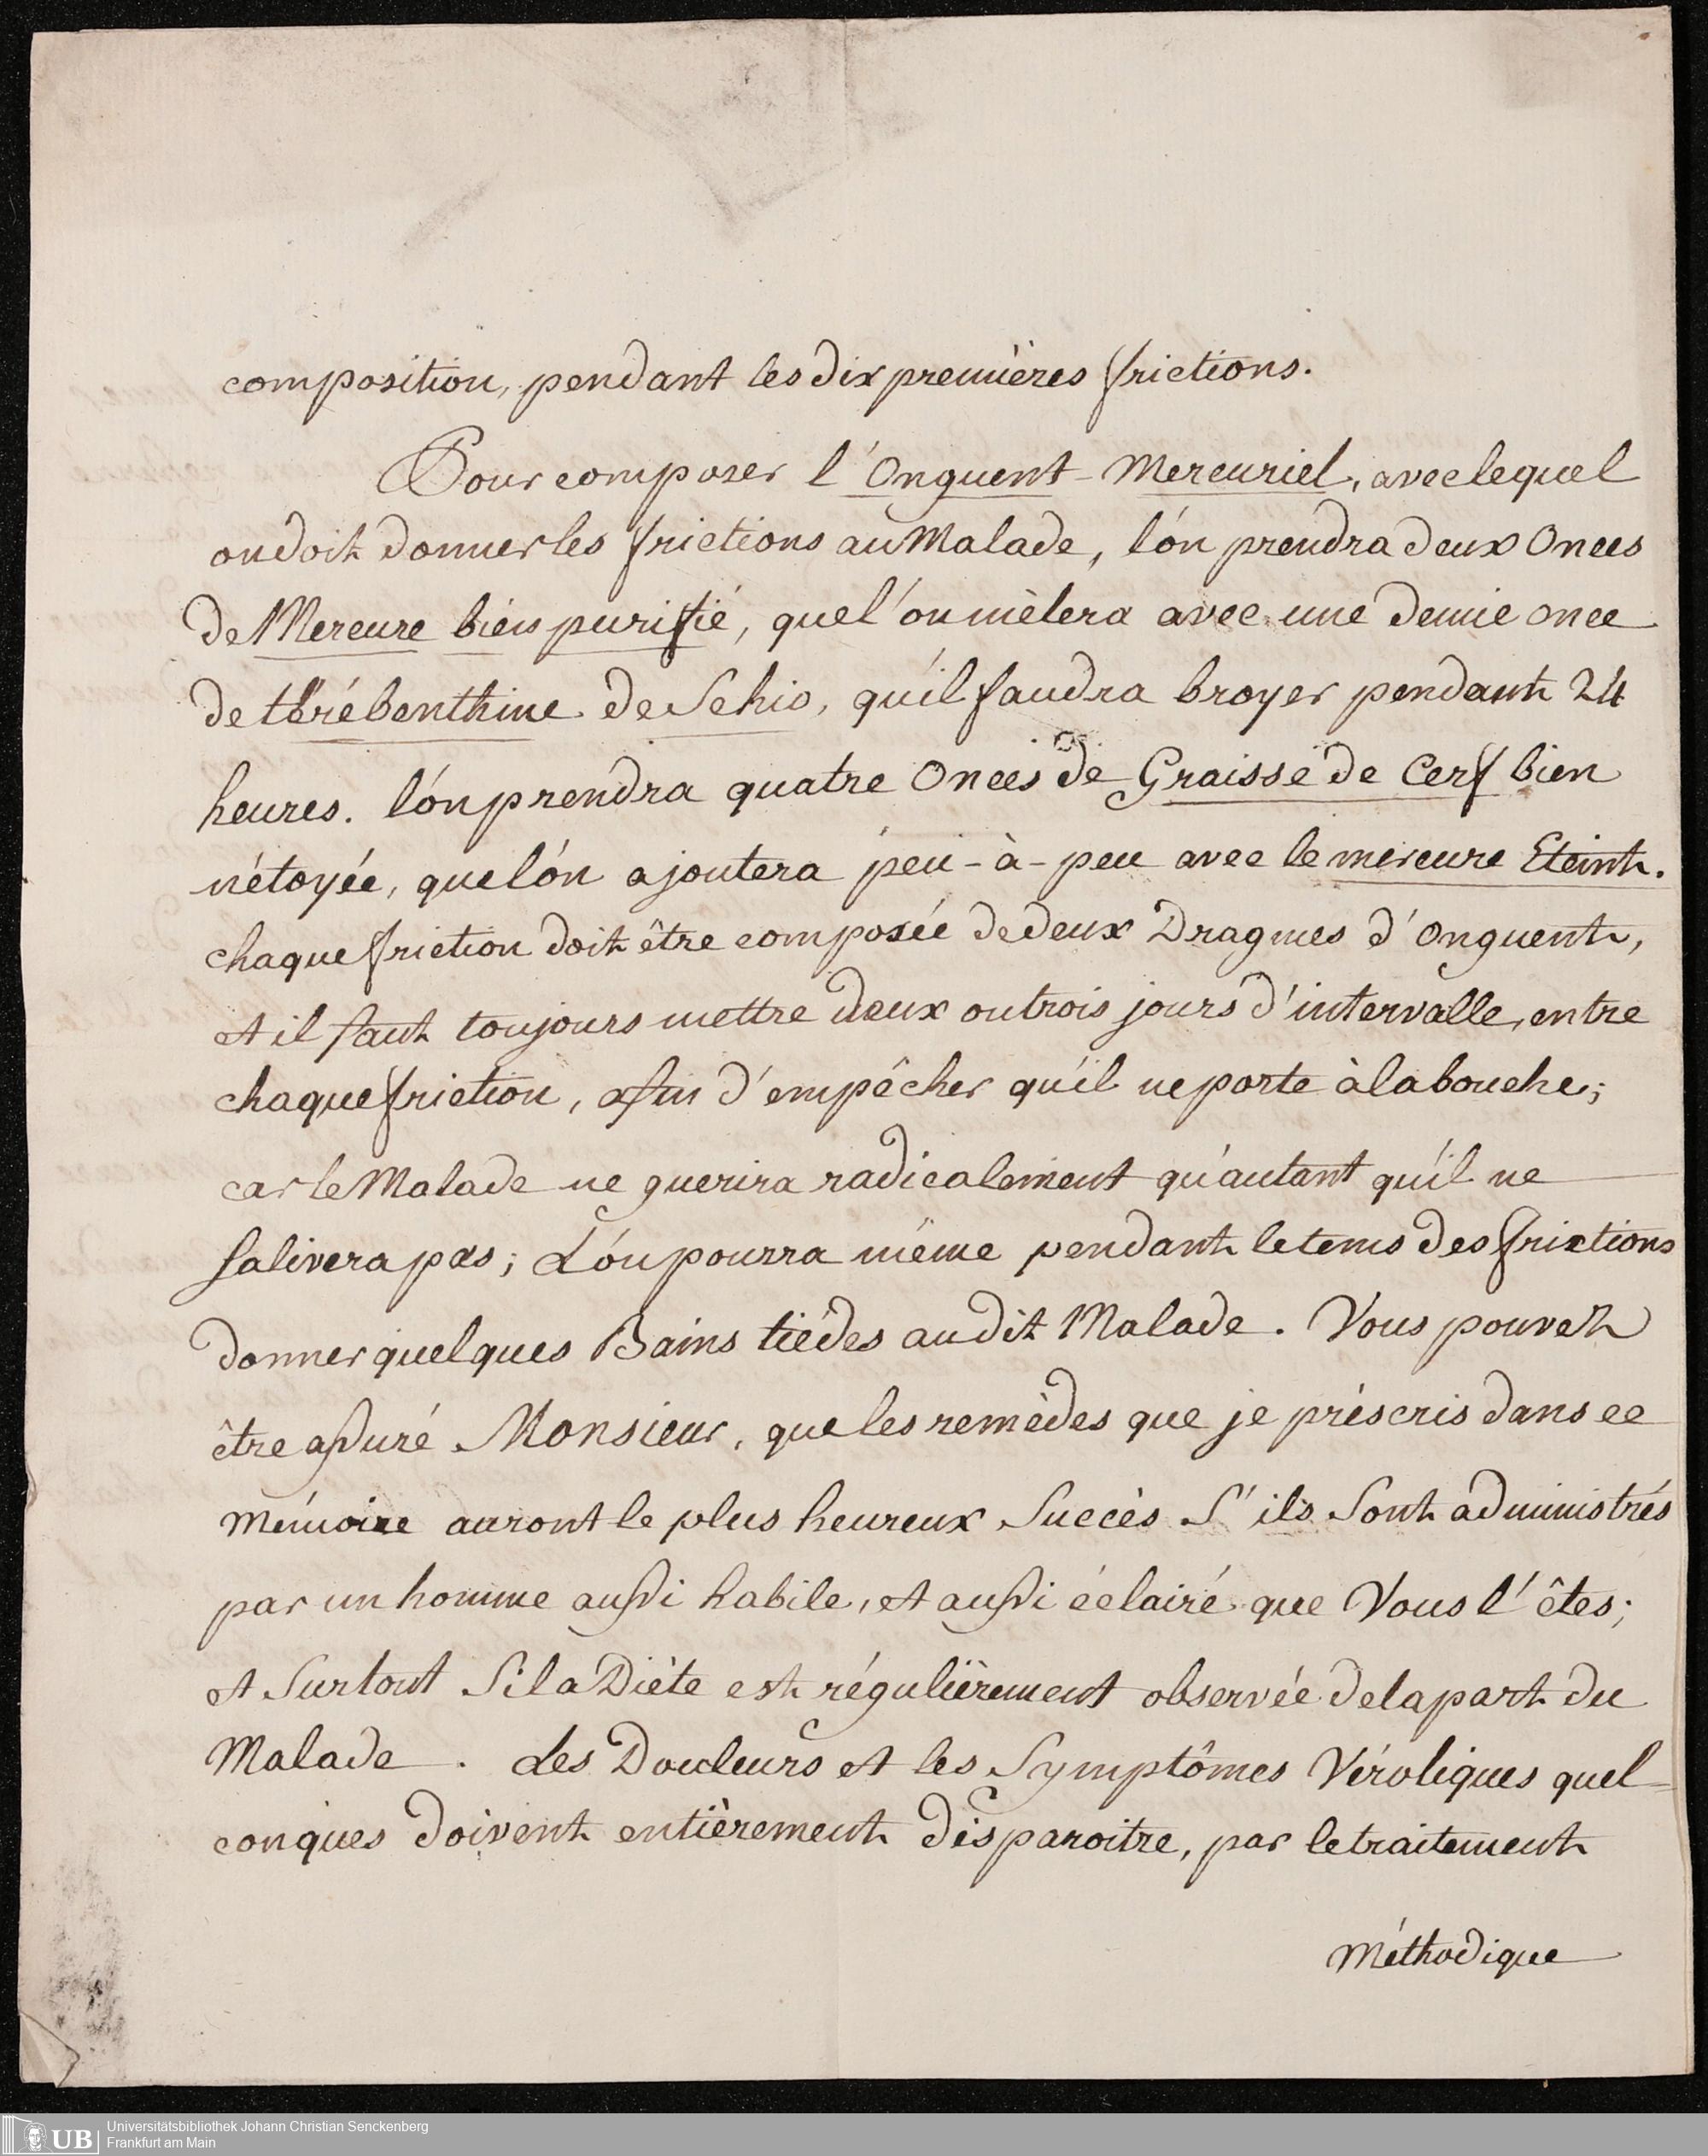 composition, pendant les dix premières frictions.
Pour composer l'Onguent-Mercuriel, avec lequel
on doit donner les frictions au Malade, l'on prendra deux Onces
de Mercure bien purifié, que l'on mèlera avec une demie once
de térébenthine de Schio, qu'il faudra broyer pendant 24
heures. l'on prendra quatre Onces de Graisse de Cerf bien
nétoyée, que l'on ajoutera peu-à-peu avec le mercure Eteint.
chaque friction doit être composée de deux Dragmes d'Onguent,
et il faut toujours mettre deux ou trois jours d'intervalle, entre
chaque friction, afin d'empêcher qu'il ne porte à la bouche;
car le Malade ne guerira radicalement qu'autant qu'il ne
salivera pas; L'on pourra même pendant le tems des frictions
donner quelques Bains tiédes au dit Malade. Vous pouvez
être assuré Monsieur, que les remèdes que je préscris dans ce
Mémoire auront le plus heureux Succès S'ils Sont administrés
par un homme aussi habile, et aussi éclairé que Vous l'êtes;
et Surtout Si la Diète est régulièrement observée de la part du
Malade. Les Douleurs et les Symptômes Véroliques quel-
conques doivent entièrement disparoitre, par le traitement
Méthodique
UB
Universitätsbibliothek Johann Christian Senckenberg
Frankfurt am Main